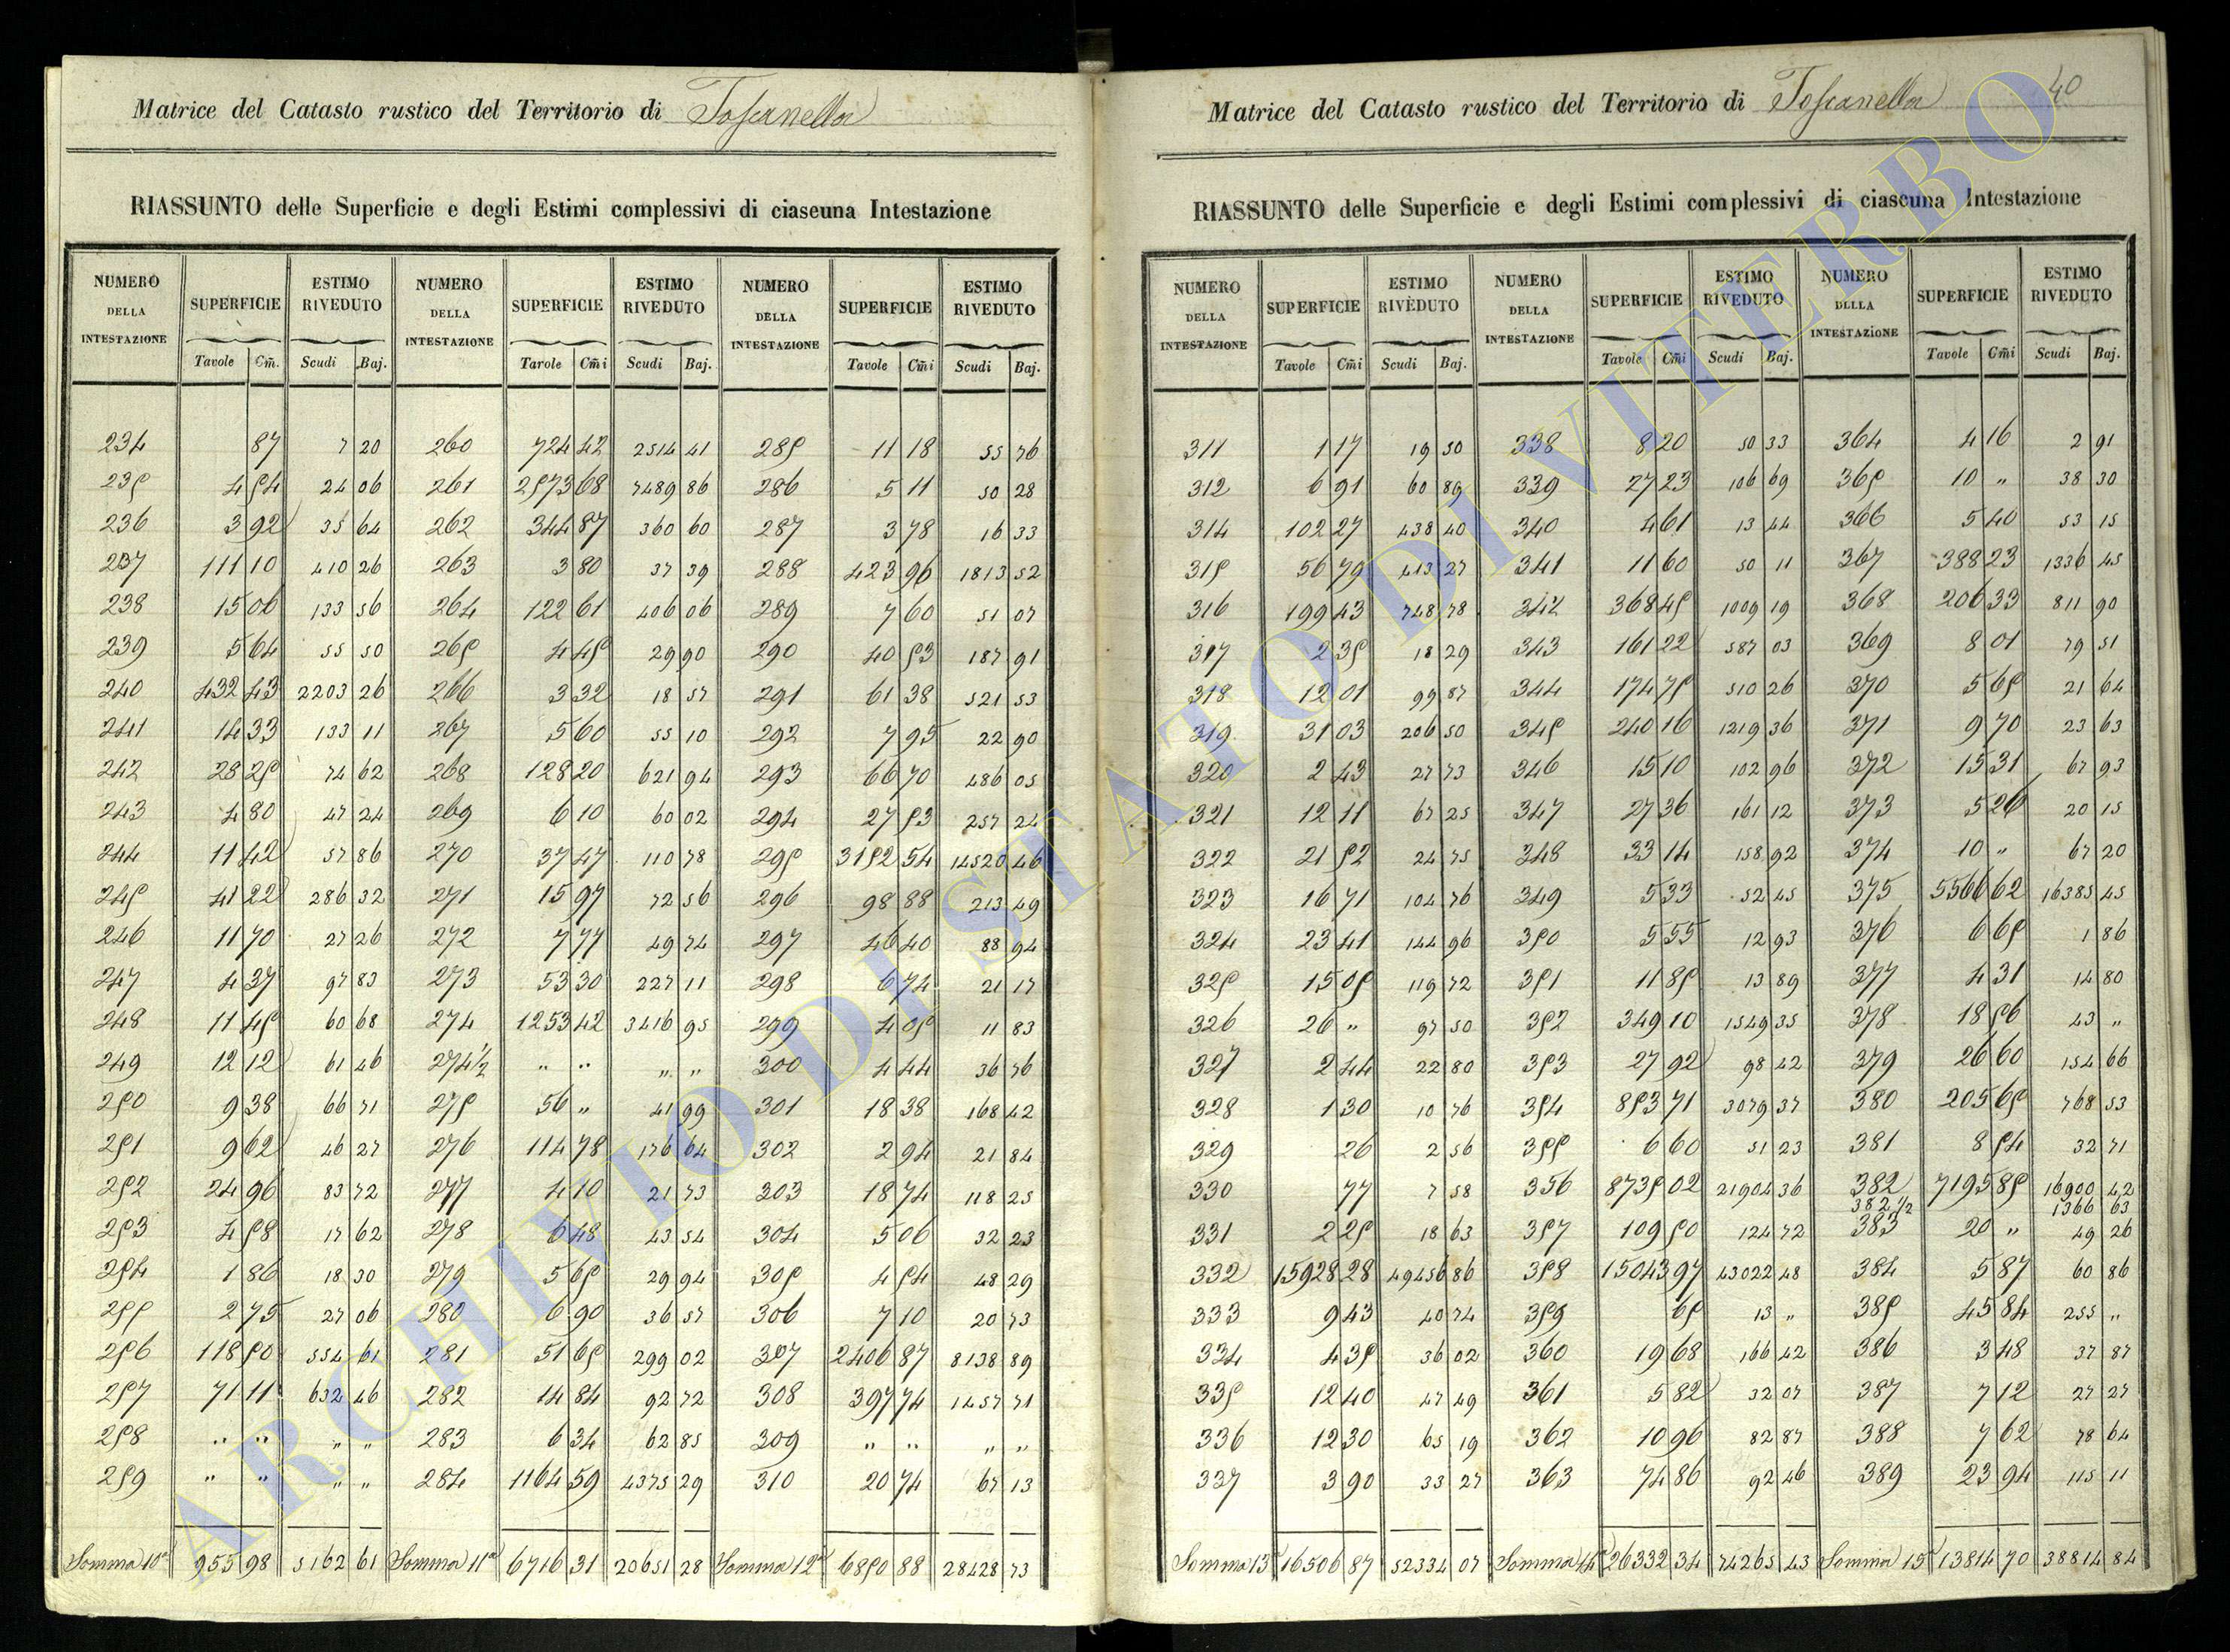 Matrice del Catasto rustico del Territorio di Toscanella
RIASSUNTO delle Superficie e degli Estimi complessivi di ciaseuna Intestazione
NUMERO DELLA INTESTAZIONE SUPERFICIE ESTIMO RIVEDUTO NUMERO DELLA INTESTAZIONE SUPERFICIE ESTIMO RIVEDUTO NUMERO DELLA INTESTAZIONE SUPERFICIE ESTIMO RIVEDUTO
Tavole Cm. Scudi Baj. Tavole Cm̃i Scudi Baj. Tavole Cm̃i Scudi Baj.
234 87 7 20 260 724 42 2514 41 285 11 18 55 76
235 4 54 24 06 261 2573 68 7489 86 286 5 11 50 28
236 3 92 35 64 262 344 87 360 60 287 3 78 16 33
237 111 10 410 26 263 3 80 37 39 288 423 96 1813 52
238 15 06 133 56 264 122 61 406 06 289 7 60 51 07
239 5 64 55 50 265 4 45 29 90 290 40 53 187 91
240 432 43 2203 26 266 3 32 18 57 291 61 38 521 53
241 14 33 133 11 267 5 60 55 10 292 7 95 22 90
242 28 25 74 62 268 128 20 621 94 293 66 70 486 05
243 4 80 47 24 269 6 10 60 02 294 27 53 257 24
244 11 42 57 86 270 37 47 110 78 295 3152 54 14520 46
245 41 22 286 32 271 15 97 72 56 296 98 88 213 49
246 11 70 27 26 272 7 77 49 74 297 46 40 88 94
247 4 37 97 83 273 53 30 227 11 298 6 74 21 17
248 11 45 60 68 274 1253 42 3416 95 299 4 05 11 83
249 12 12 61 46 274½ " " " " 300 4 44 36 76
250 9 38 66 71 275 56 " 41 99 301 18 38 168 42
251 9 62 46 27 276 114 78 176 64 302 2 94 21 84
252 24 96 83 72 277 4 10 21 73 303 18 74 118 25
253 4 58 17 62 278 6 48 43 54 304 5 06 32 23
254 1 86 18 30 279 5 65 29 94 305 4 54 48 29
255 2 75 27 06 280 6 90 36 57 306 7 10 20 73
256 118 50 554 61 281 51 65 299 02 307 2406 87 8138 89
257 71 11 632 46 282 14 84 92 72 308 397 74 1457 71
258 " " " " 283 6 34 62 85 309 " " " "
259 " " " " 284 1164 59 4375 29 310 20 74 67 13
Somma 10ª 955 98 5162 61 Somma 11ª 6716 31 20651 28 Somma 12ª 6890 88 28428 73
40
Matrice del Catasto rustico del Territorio di Toscanella
RIASSUNTO delle Superficie e degli Estimi complessivi di ciascuna Intestazione
NUMERO DELLA INTESTAZIONE SUPERFICIE ESTIMO RIVEDUTO NUMERO DELLA INTESTAZIONE SUPERFICIE ESTIMO RIVEDUTO NUMERO DELLA INTESTAZIONE SUPERFICIE ESTIMO RIVEDUTO
Tavole Cm̃i Scudi Baj. Tavole Cm̃i Scudi Baj. Tavole Cm̃i Scudi Baj.
311 1 17 19 50 338 8 20 50 33 364 4 16 2 91
312 6 91 60 89 339 27 23 106 69 365 10 " 38 30
314 102 27 438 40 340 4 61 13 44 366 5 40 53 15
315 56 79 413 27 341 11 60 50 11 367 388 23 1336 45
316 199 43 748 78 342 368 45 1009 19 368 206 33 811 90
317 2 35 18 29 343 161 22 587 03 369 8 01 79 51
318 12 01 99 87 344 174 75 510 26 370 5 65 21 64
319 31 03 206 50 345 240 16 1219 36 371 9 70 23 63
320 2 43 27 73 346 15 10 102 96 372 15 31 67 93
321 12 11 67 25 347 27 36 161 12 373 5 26 20 15
322 21 52 24 75 348 33 14 158 92 374 10 " 67 20
323 16 71 104 76 349 5 33 52 45 375 5566 62 16385 45
324 23 41 144 96 350 5 55 12 93 376 6 65 1 86
325 15 05 119 72 351 11 85 13 89 377 4 31 14 80
326 26 " 97 50 352 349 10 1549 35 378 18 56 43 "
327 2 44 22 80 353 27 92 98 42 379 26 60 154 66
328 1 30 10 76 354 853 71 3079 37 380 205 65 768 53
329 26 2 56 355 6 60 51 23 381 8 54 32 71
330 77 7 58 356 8735 02 21904 36 382 7195 85 16900 42
382 ½ 1366 63
331 2 25 18 63 357 109 50 124 72 383 20 " 49 26
332 15928 28 49456 86 358 15043 97 43022 48 384 5 87 60 86
333 9 43 40 74 359 65 13 " 385 45 84 255 "
334 4 35 36 02 360 19 68 166 42 386 3 48 37 87
335 12 40 47 49 361 5 82 32 07 387 7 12 27 27
336 12 30 65 19 362 10 96 82 87 388 7 62 78 64
337 3 90 33 27 363 74 86 92 46 389 23 94 115 11
Somma 13ª 16506 87 52334 07 Somma 14ª 26332 34 74265 43 Somma 15ª 13814 70 38814 84
ARCHIVIO DI STATO DI VITERBO